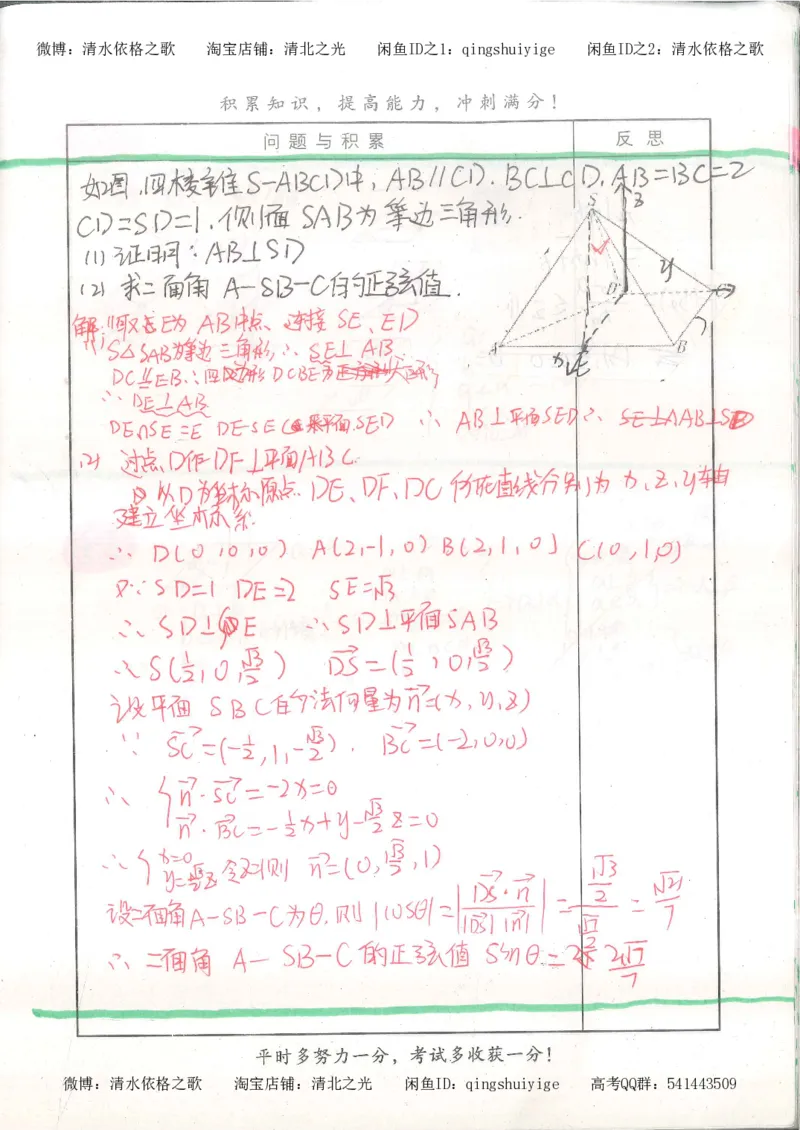 微博：清水依格之歌　淘宝店铺：清北之光　闲鱼ID之1：qingshuiyige　闲鱼ID之2：清水依格之歌
积累知识，提高能力，冲刺满分！
问题与积累　反思
如图,四棱锥S-ABCD中,AB//CD.BC⊥CD,AB=BC=2
CD=SD=1,侧面SAB为等边三角形.
(1)证明:AB⊥SD
(2)求二面角A-SB-C的正弦值.
S
z
y
D
C
A
B
x
E
解:(1)取E为AB中点、连接SE、ED
∵S△SAB为等边三角形,∴SE⊥AB
DC∥EB∴四边形DCBE为矩形
∴DE⊥AB
DE∩SE=E DE、SE⊂平面SED ∴AB⊥平面SED∴AB⊥SD
(2)过点D作DF⊥平面ABC.
以D为坐标原点.DE、DF、DC所在直线分别为x、z、y轴
建立坐标系.
∴D(0,0,0) A(2,-1,0) B(2,1,0) C(0,1,0)
又∵SD=1 DE=2 SE=√3
∴SD⊥SE ∴SD⊥平面SAB
∴S(1/2,0,√3/2) DS=(1/2,0,√3/2)
设平面SBC的法向量为n=(x,y,z)
∵SC=(-1/2,1,-√3/2).BC=(-2,0,0)
∴{n·SC=-2x=0
n·BC=-1/2x+y-√3/2z=0
∴{x=0
y=√3/2z 令z=1则n=(0,√3/2,1)
设二面角A-SB-C为θ,则|cosθ|=|DS·n/|DS||n||=(√3/2)/(√7/2)=√21/7
∴二面角A-SB-C的正弦值sinθ=2√7/7
平时多努力一分，考试多收获一分！
微博：清水依格之歌　淘宝店铺：清北之光　闲鱼ID：qingshuiyige　高考QQ群：541443509